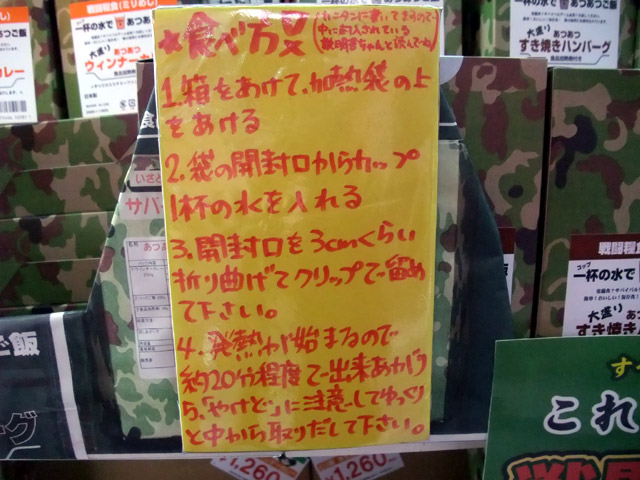 ★食べ方
1.箱をあけて、加熱袋の上
をあける
2.袋の開封口からカップ
1杯の水を入れる
3.開封口を3cmくらい
折り曲げてクリップで留め
て下さい。
4.発熱が始まるので
約20分程度で出来あがり
5.「やけど」に注意してゆっくり
と中から取りだして下さい。
戦闘糧食(ミリめし)
一杯の水で あつあつご飯
大盛り あつあつ
ウィンナー
カレー
一杯の水で あつあつご飯
大盛り あつあつ
すき焼きハンバーグ
戦闘糧
コップ
一杯の水で
大盛り あつ
すき焼き
サバ
ご飯
グ
す
これ
¥1,260
¥1,260